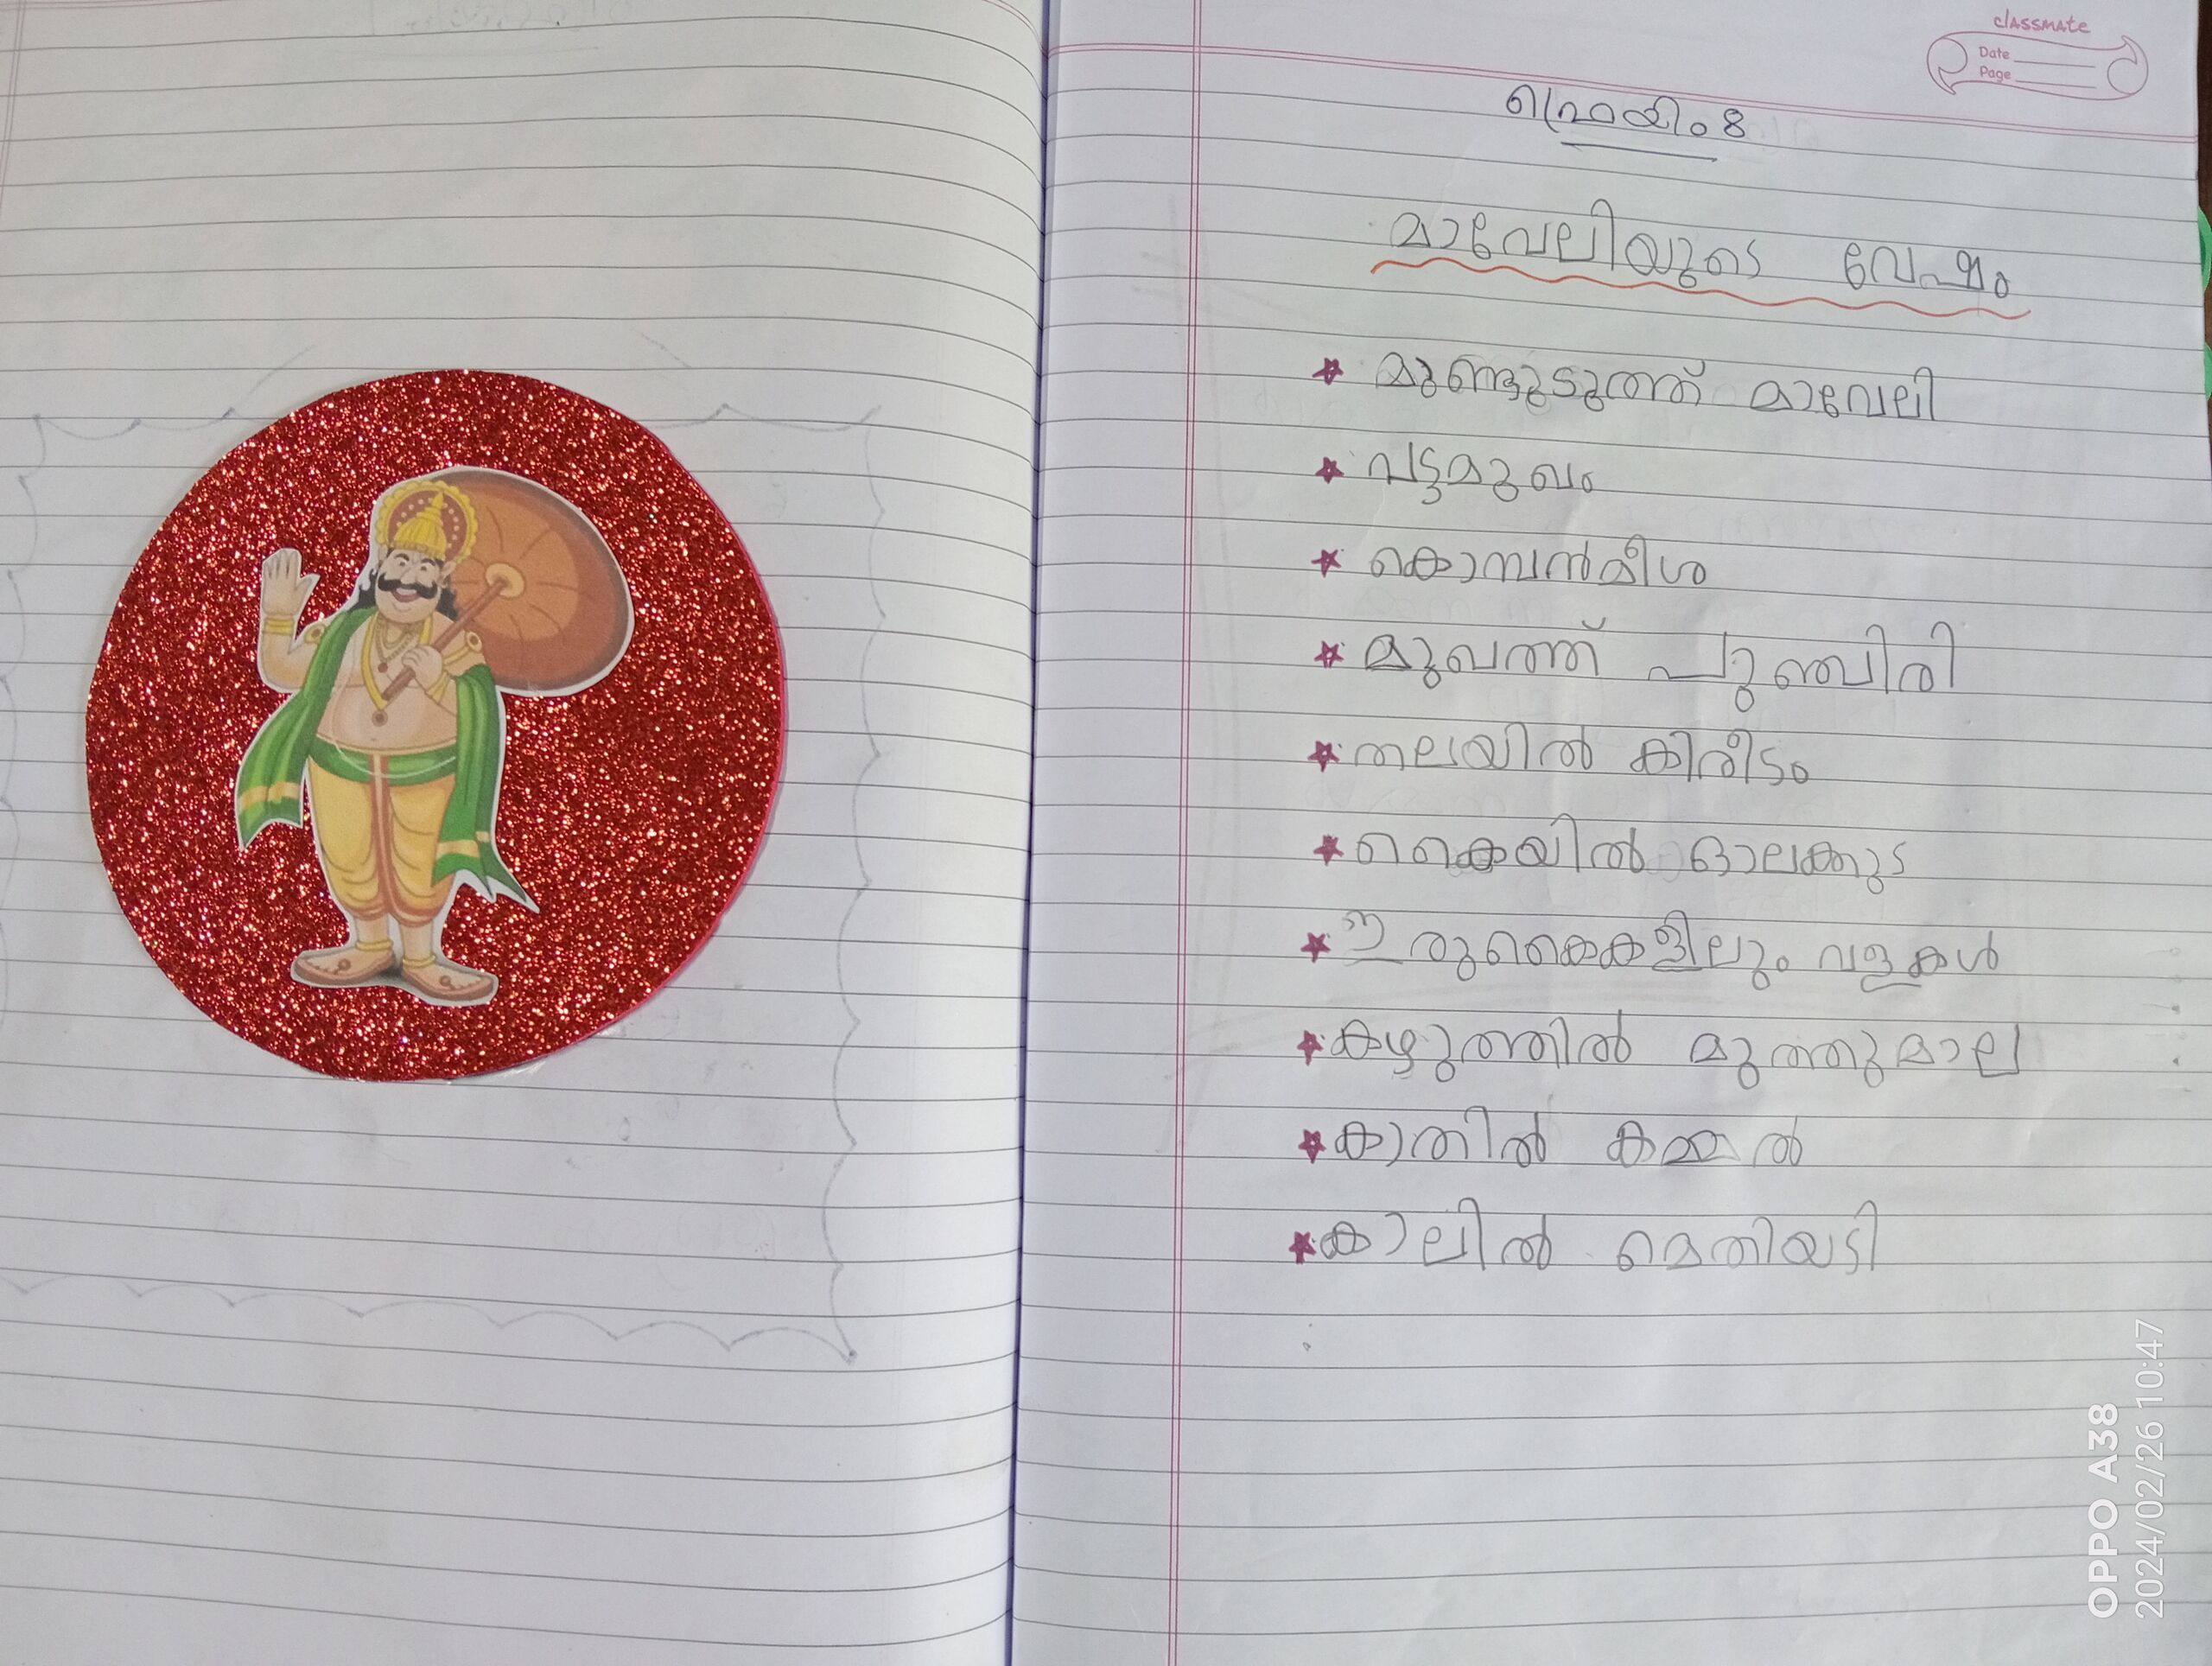 classmate
Date
Page
ഫ്രെയിം 8
മാവേലിയുടെ വേഷം
മുണ്ടുടുത്ത് മാവേലി
വട്ടമുഖം
കൊമ്പൻമീശ
മുഖത്ത് പുഞ്ചിരി
തലയിൽ കിരീടം
കൈയിൽ ഓലക്കുട
ഇരുകൈകളിലും വളകൾ
കഴുത്തിൽ മുത്തുമാല
കാതിൽ കമ്മൽ
കാലിൽ മെതിയടി
OPPO A38
2024/02/26 10:47